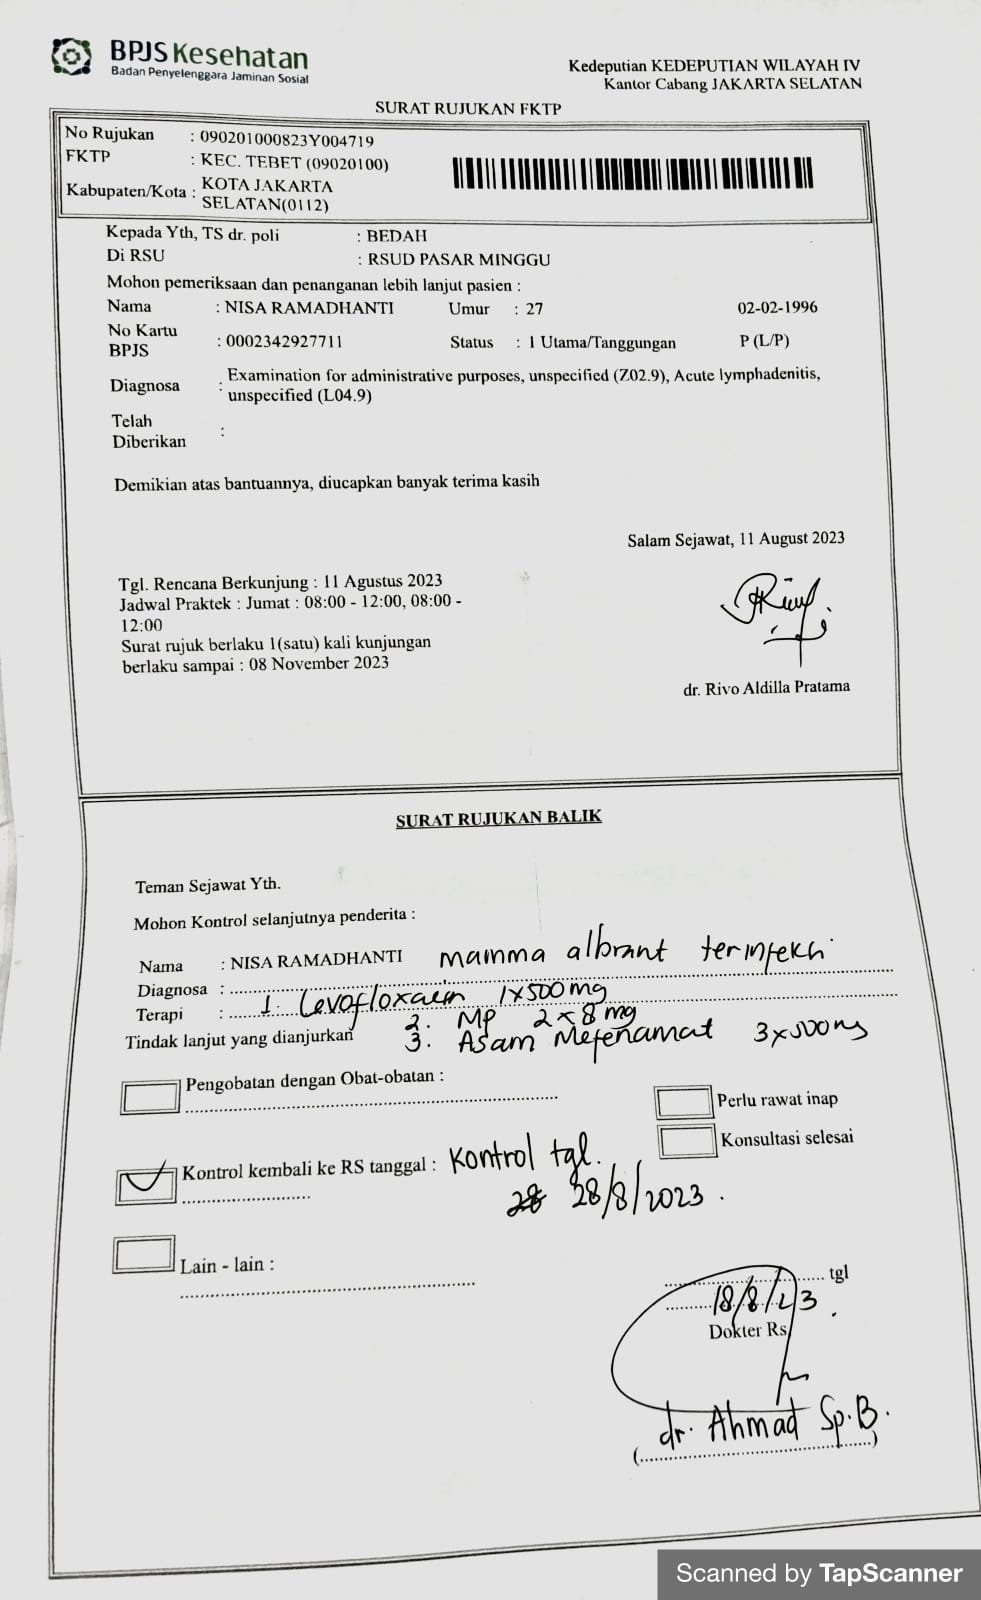 BPJS Kesehatan
Badan Penyelenggara Jaminan Sosial
Kedeputian KEDEPUTIAN WILAYAH IV
Kantor Cabang JAKARTA SELATAN
SURAT RUJUKAN FKTP
No Rujukan : 090201000823Y004719
FKTP : KEC. TEBET (09020100)
Kabupaten/Kota : KOTA JAKARTA
SELATAN(0112)
Kepada Yth, TS dr. poli : BEDAH
Di RSU : RSUD PASAR MINGGU
Mohon pemeriksaan dan penanganan lebih lanjut pasien :
Nama : NISA RAMADHANTI Umur : 27 02-02-1996
No Kartu
BPJS : 0002342927711 Status : 1 Utama/Tanggungan P (L/P)
Diagnosa : Examination for administrative purposes, unspecified (Z02.9), Acute lymphadenitis,
unspecified (L04.9)
Telah
Diberikan :
Demikian atas bantuannya, diucapkan banyak terima kasih
Salam Sejawat, 11 August 2023
Tgl. Rencana Berkunjung : 11 Agustus 2023
Jadwal Praktek : Jumat : 08:00 - 12:00, 08:00 -
12:00
Surat rujuk berlaku 1(satu) kali kunjungan
berlaku sampai : 08 November 2023
dr. Rivo Aldilla Pratama
SURAT RUJUKAN BALIK
Teman Sejawat Yth.
Mohon Kontrol selanjutnya penderita :
Nama : NISA RAMADHANTI
Diagnosa : mamma albrant terinfeksi
Terapi : 1. Levofloxacin 1x500mg
2. MP 2x8mg
Tindak lanjut yang dianjurkan
3. Asam Mefenamat 3x500mg
Pengobatan dengan Obat-obatan :
Perlu rawat inap
Konsultasi selesai
Kontrol kembali ke RS tanggal : Kontrol tgl.
28/8/2023.
Lain - lain :
tgl
18/8/23.
Dokter Rs
dr. Ahmad Sp.B.
Scanned by TapScanner